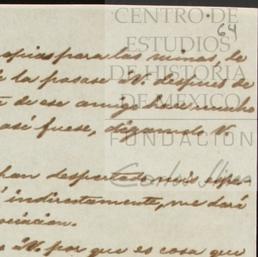 CENTRO DE
64
ESTUDIOS
DE HISTORIA
DE MEXICO
FUNDACIÓN
Carlos Slim
copias para las minas, de
de la pasase á V. despues de
de ese amigo
así fuese, digamelo V.
han despertado mis
indirectamente, me dará
á V. por que es cosa que